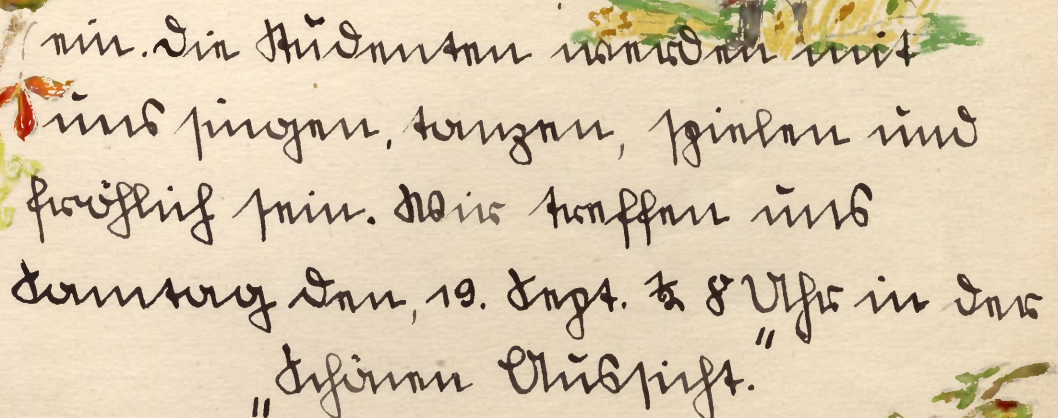 ein. Die Studenten werden mit
uns singen, tanzen, spielen und
fröhlich sein. Wir treffen uns
Samtag den, 19. Sept. ½ 8 Uhr in der
„Schönen Aussicht."